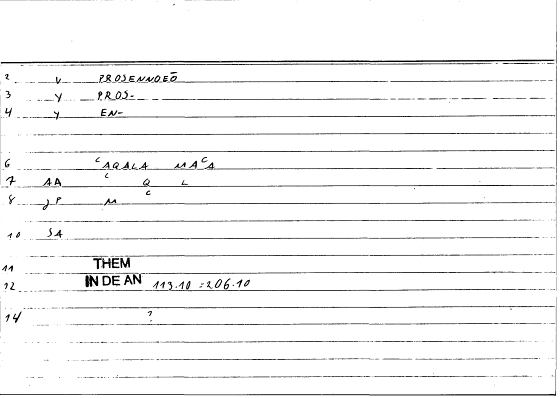 2 V PROSENNOEŌ
3 Y PROS-
4 Y EN-
6 ᶜAQALA MAᶜA
7 AA ᶜ Q L
8 JP M ᶜ
10 SA
11 THEM
12 IN DE AN 113.10 =206.10
14 ?